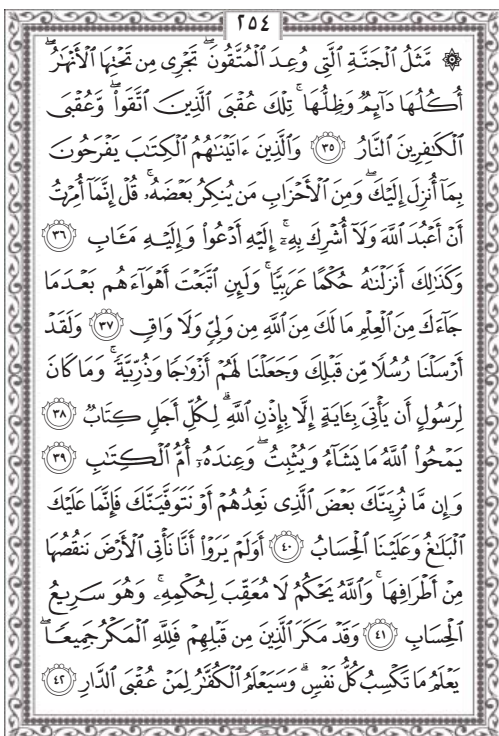 ٢٥٤
۞ مَّثَلُ ٱلْجَنَّةِ ٱلَّتِى وُعِدَ ٱلْمُتَّقُونَ ۖ تَجْرِى مِن تَحْتِهَا ٱلْأَنْهَـٰرُ ۖ
أُكُلُهَا دَآئِمٌ وَظِلُّهَا ۚ تِلْكَ عُقْبَى ٱلَّذِينَ ٱتَّقَوا۟ ۖ وَّعُقْبَى
ٱلْكَـٰفِرِينَ ٱلنَّارُ ٣٥ وَٱلَّذِينَ ءَاتَيْنَـٰهُمُ ٱلْكِتَـٰبَ يَفْرَحُونَ
بِمَآ أُنزِلَ إِلَيْكَ ۖ وَمِنَ ٱلْأَحْزَابِ مَن يُنكِرُ بَعْضَهُۥ ۚ قُلْ إِنَّمَآ أُمِرْتُ
أَنْ أَعْبُدَ ٱللَّهَ وَلَآ أُشْرِكَ بِهِۦٓ ۚ إِلَيْهِ أَدْعُوا۟ وَإِلَيْهِ مَـَٔابِ ٣٦
وَكَذَٰلِكَ أَنزَلْنَـٰهُ حُكْمًا عَرَبِيًّا ۚ وَلَئِنِ ٱتَّبَعْتَ أَهْوَآءَهُم بَعْدَمَا
جَآءَكَ مِنَ ٱلْعِلْمِ مَا لَكَ مِنَ ٱللَّهِ مِن وَلِىٍّ وَلَا وَاقٍ ٣٧ وَلَقَدْ
أَرْسَلْنَا رُسُلًا مِّن قَبْلِكَ وَجَعَلْنَا لَهُمْ أَزْوَٰجًا وَذُرِّيَّةً ۚ وَمَا كَانَ
لِرَسُولٍ أَن يَأْتِىَ بِـَٔايَةٍ إِلَّا بِإِذْنِ ٱللَّهِ ۗ لِكُلِّ أَجَلٍ كِتَابٌ ٣٨
يَمْحُوا۟ ٱللَّهُ مَا يَشَآءُ وَيُثْبِتُ ۖ وَعِندَهُۥٓ أُمُّ ٱلْكِتَـٰبِ ٣٩
وَإِن مَّا نُرِيَنَّكَ بَعْضَ ٱلَّذِى نَعِدُهُمْ أَوْ نَتَوَفَّيَنَّكَ فَإِنَّمَا عَلَيْكَ
ٱلْبَلَـٰغُ وَعَلَيْنَا ٱلْحِسَابُ ٤٠ أَوَلَمْ يَرَوْا۟ أَنَّا نَأْتِى ٱلْأَرْضَ نَنقُصُهَا
مِنْ أَطْرَافِهَا ۚ وَٱللَّهُ يَحْكُمُ لَا مُعَقِّبَ لِحُكْمِهِۦ ۚ وَهُوَ سَرِيعُ
ٱلْحِسَابِ ٤١ وَقَدْ مَكَرَ ٱلَّذِينَ مِن قَبْلِهِمْ فَلِلَّهِ ٱلْمَكْرُ جَمِيعًا ۖ
يَعْلَمُ مَا تَكْسِبُ كُلُّ نَفْسٍ ۗ وَسَيَعْلَمُ ٱلْكُفَّـٰرُ لِمَنْ عُقْبَى ٱلدَّارِ ٤٢